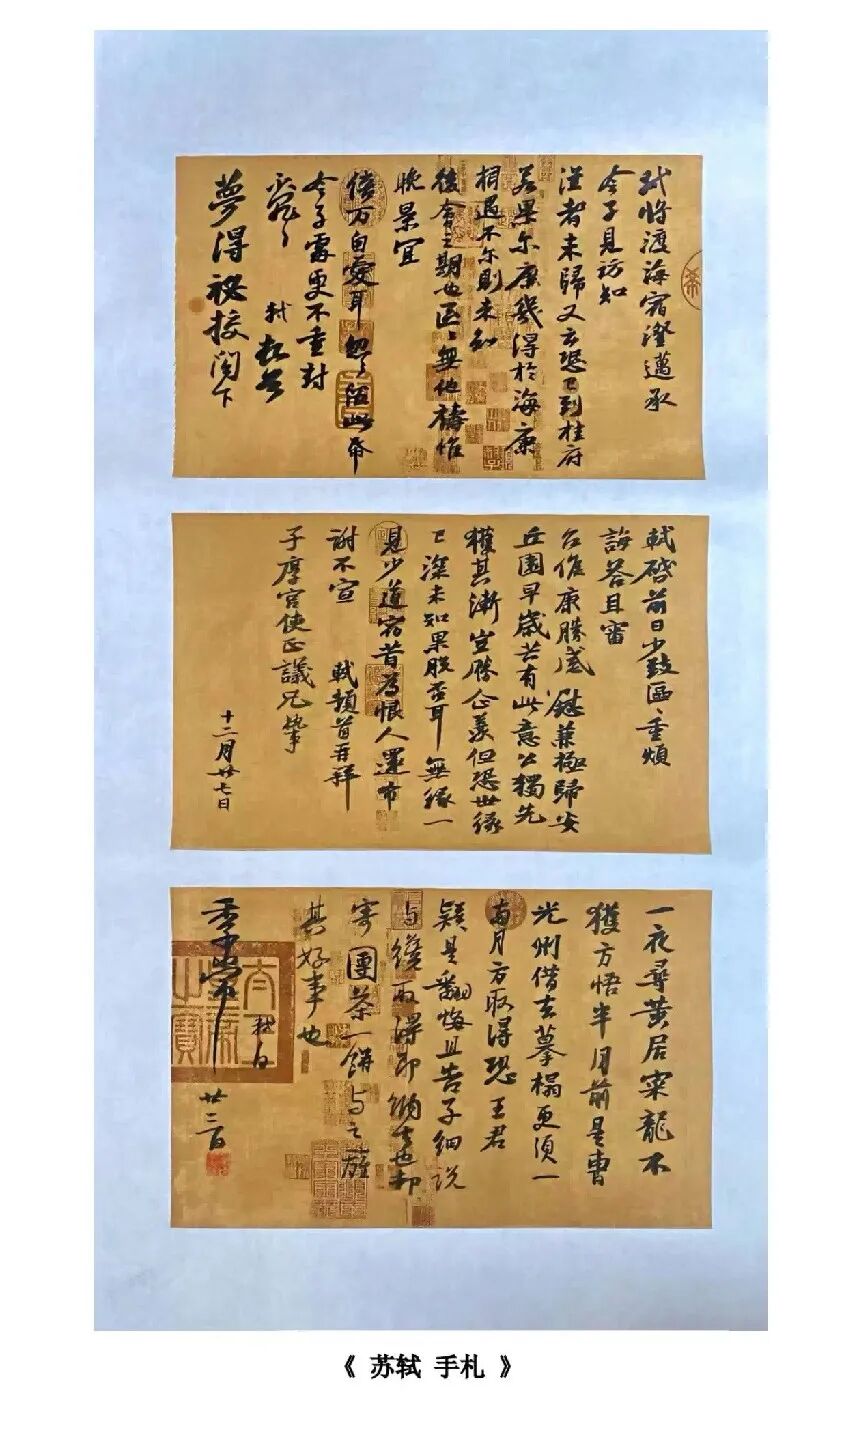 軾將渡海宿澄邁承
令子見訪知
從者未歸又云恐已到桂府
若果尔庶幾得於海康
相遇不尔則未知
後會之期也區〻無他禱惟
晚景宜
倍万自愛耳忽〻留此帋
令子處更不重封
不罪〻〻 軾頓首
夢得祕校閣下
軾啓前日少致區〻重煩
誨答且審
台候康勝感慰兼極歸安
丘園早歲共有此意公獨先
獲其漸豈勝企羨但恐世緣
已深未知果脫否耳無緣一
見少道宿昔為恨人還布
謝不宣 軾頓首再拜
子厚宮使正議兄執事
十二月廿七日
一夜尋黃居寀龍不
獲方悟半月前是曹
光州借去摹搨更須一
兩月方取得恐王君
疑是翻悔且告子細說
与纔取得即納去也却
寄團茶一餅与之旌
其好事也
軾白
季常 廿三日
太上
皇帝
之寶
《 苏轼 手札 》